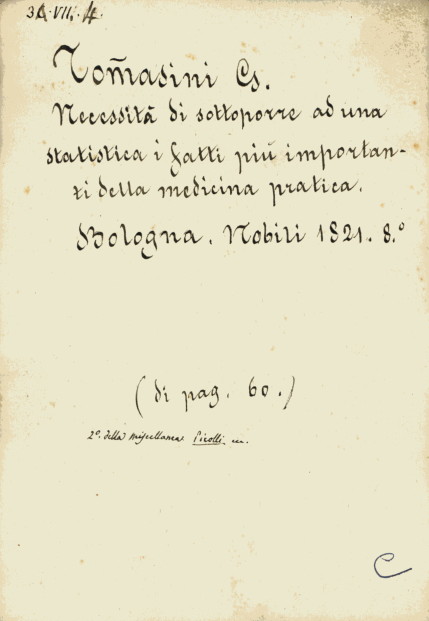 3A.VII.4.
Tom̃asini Cs.
Necessità di sottoporre ad una
statistica i fatti più importan-
ti della medicina pratica.
Bologna. Nobili 1821. 8.°
(di pag. 60.)
2°. della miscellanea
C